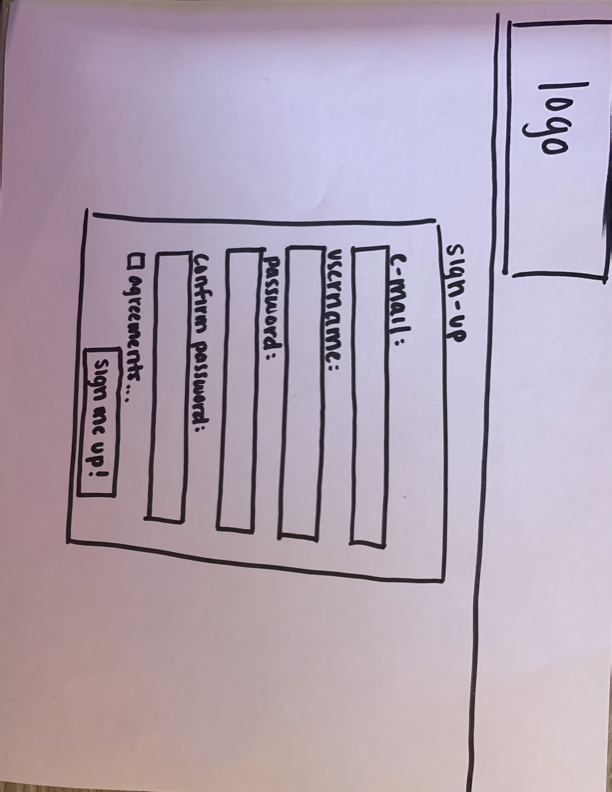 logo
sign-up
e-mail:
username:
password:
confirm password:
agreements...
sign me up!